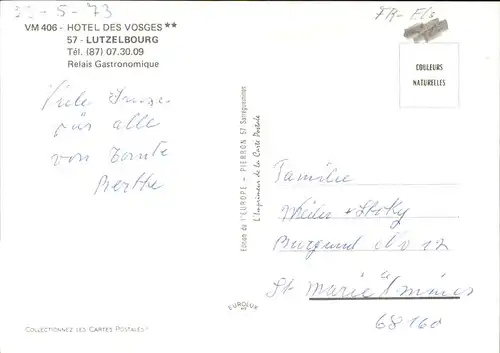 30-5-73
FR-Els
VM 406 - HOTEL DES VOSGES **
57 - LUTZELBOURG
Tél. (87) 07.30.09
Relais Gastronomique
COULEURS
NATURELLES
Viele Grüsse
für alle
von Tante
Berthe
Edition de l'EUROPE - PIERRON 57-Sarreguemines
L'Imprimeur de la Carte Postale
Familie
Burgund No 12
à
St Marie Mines
68160
EUROLUX
COLLECTIONNEZ LES CARTES POSTALES